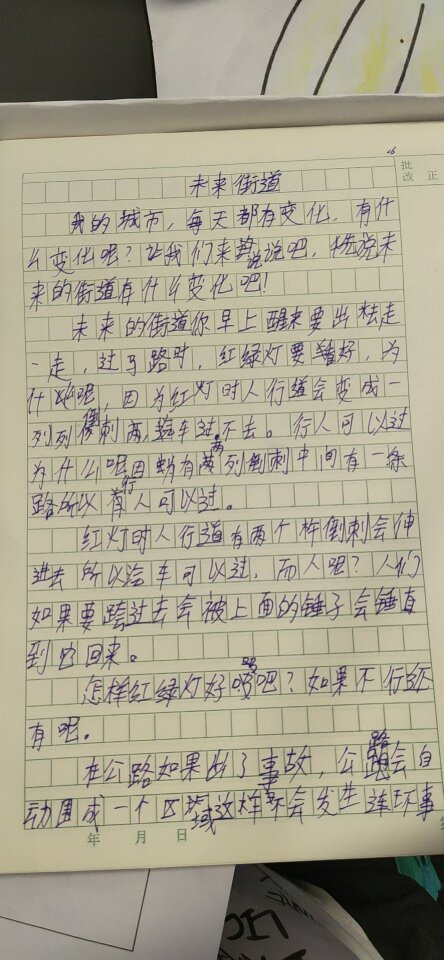 批
改 正
未来街道
我的城市，每天都有变化，有什
么变化呢？让我们来说说吧，先说未
来的街道有什么变化吧！
未来的街道你早上醒来要出去走
一走，过马路时，红绿灯要看好，为
什么呢，因为红灯时人行道会变成一
列列倒刺两，汽车过不去。行人可以过
为什么呢因为有两列倒刺中间有一条
路所以行人可以过。
红灯时人行道有两个倒刺会伸
进去所以汽车可以过，而人呢？人们
如果要跨过去会被上面的锤子会锤直
到它回来。
怎样红绿灯好吧？如果不行还
有呢。
在公路如果出了事故，公路会自
动围成一个区域这样不会发生连环事
年 月 日